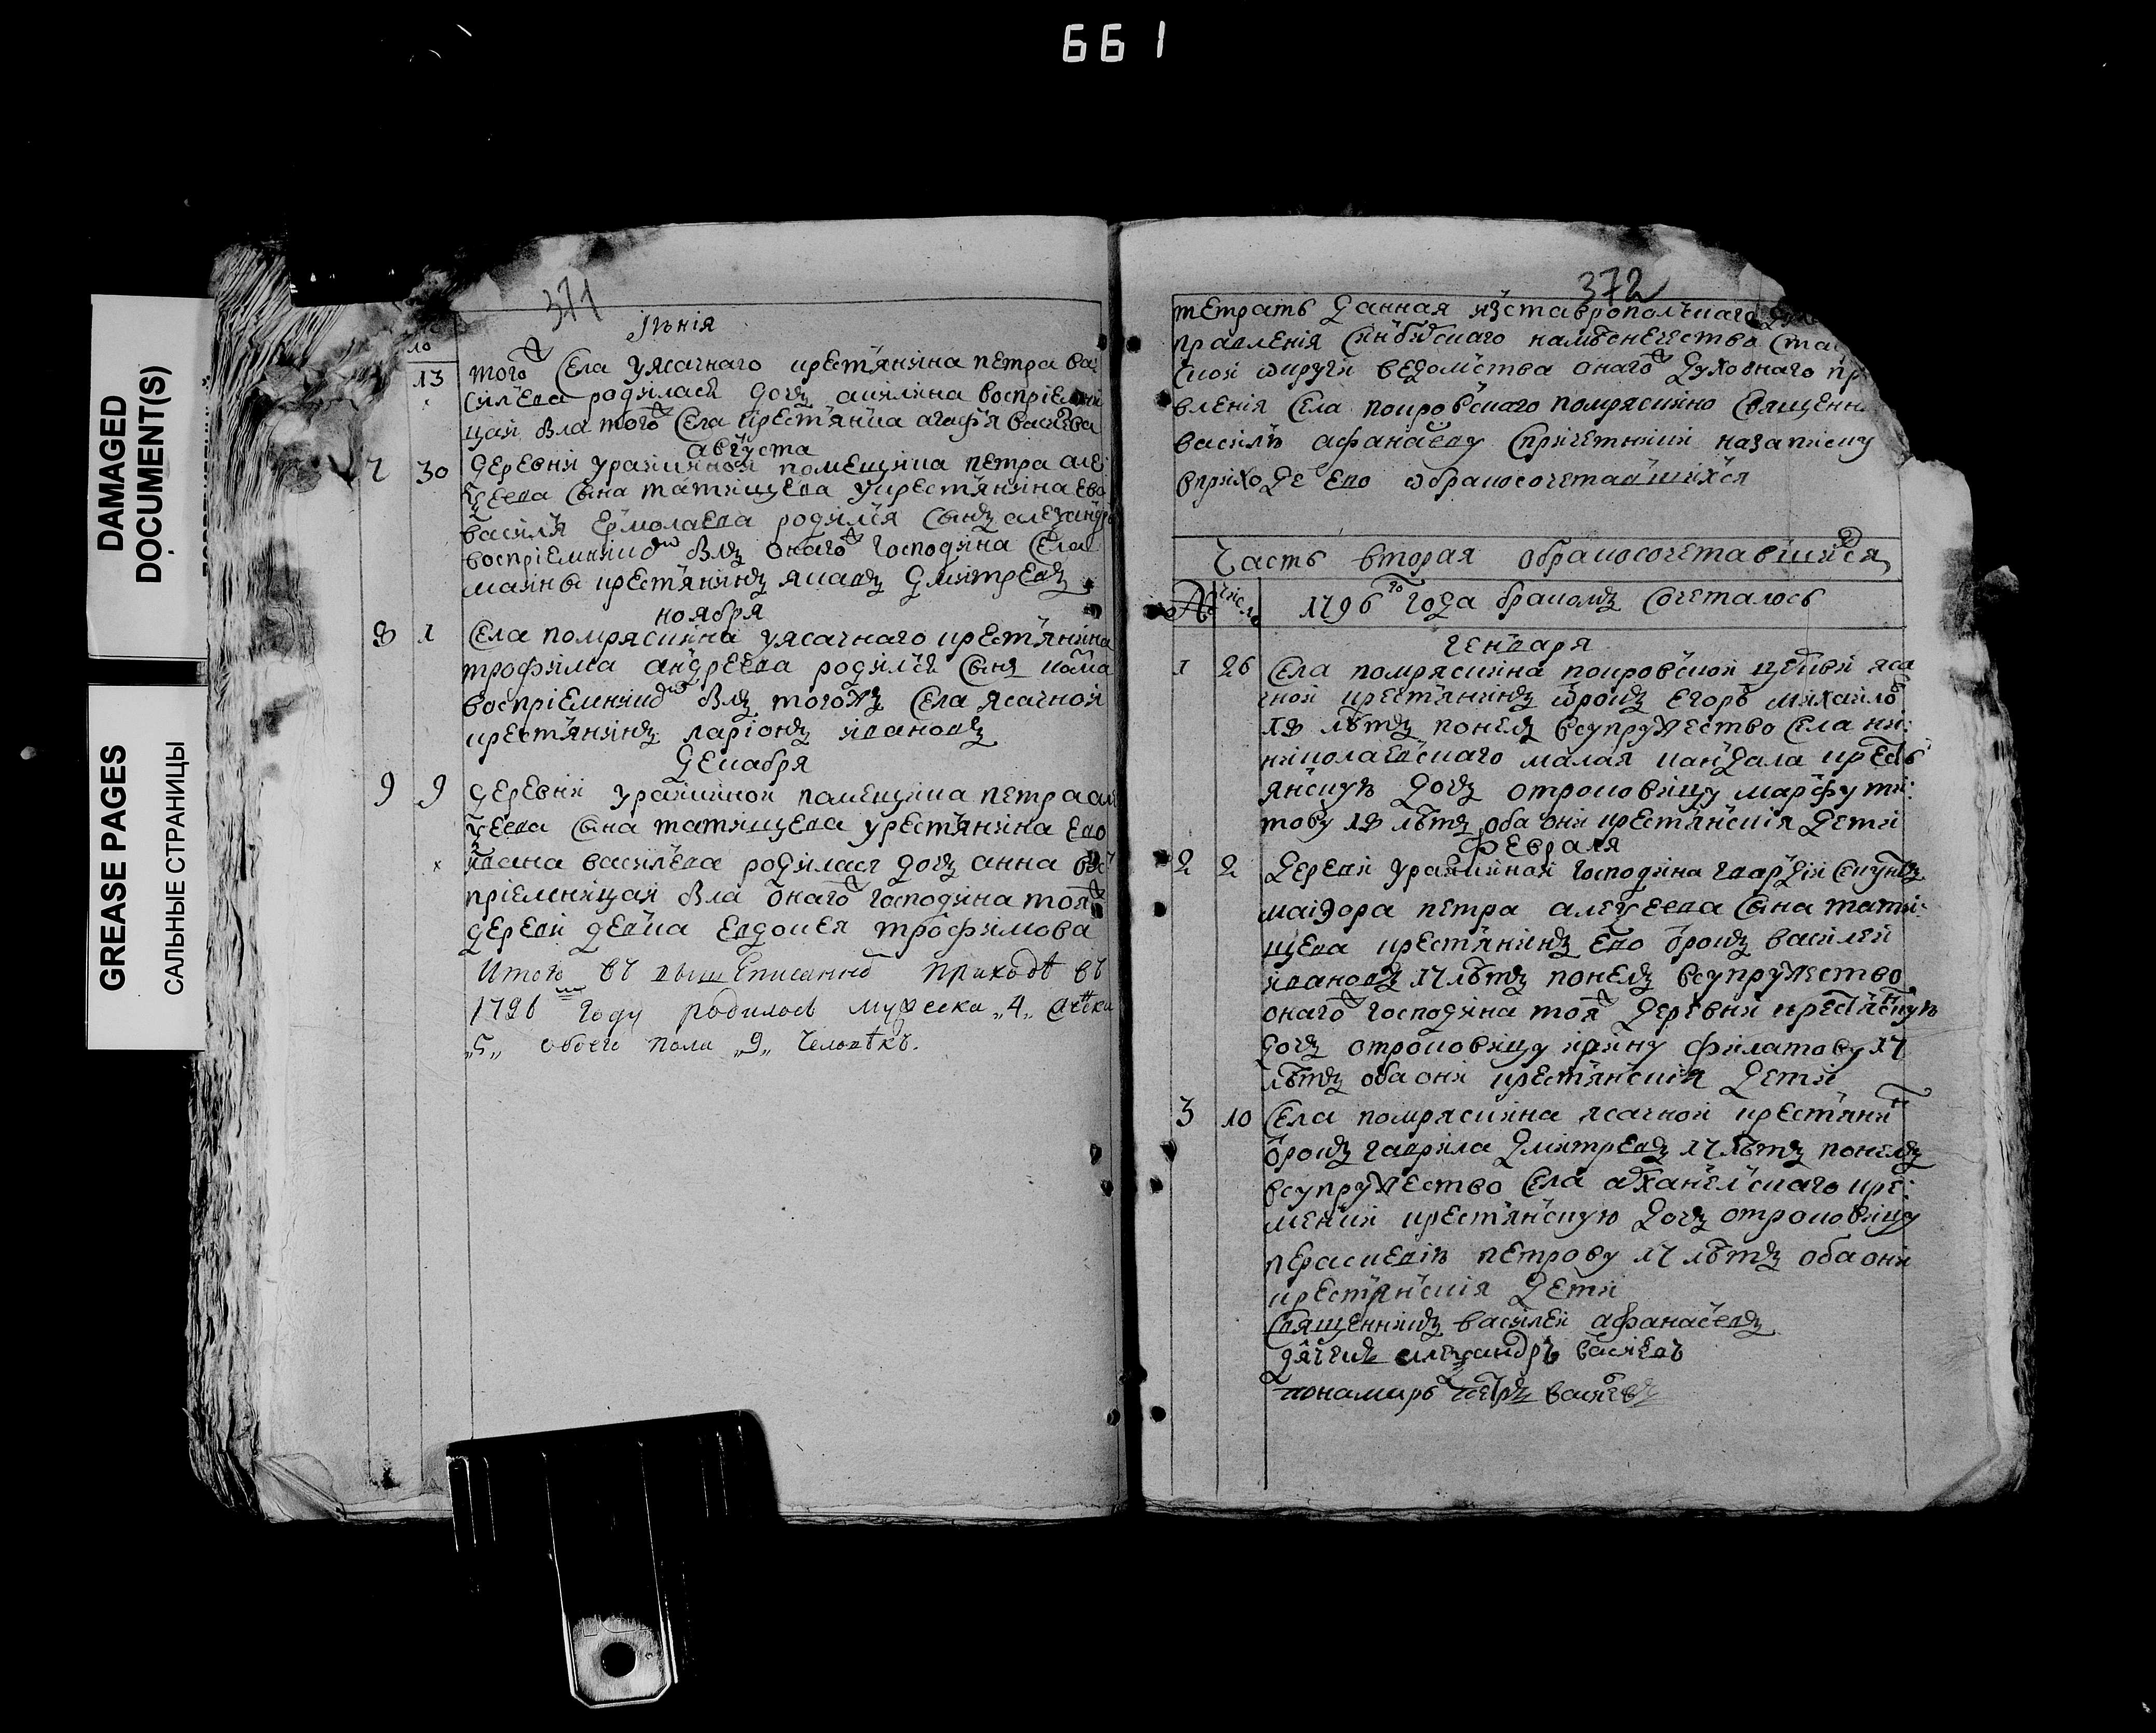 661
DAMAGED
DOCUMENT(S)
GREASE PAGES
САЛЬНЫЕ СТРАНИЦЫ
371
Іюнія
ло
13 того ж села уясачнаго крестьянина петра ва
сильева родилась дочь акилина воспріемни
цай была того ж села крестьянка агафья васильева
августа
7 30 деревни урайкиной помещика петра але
ѯеева сына татищева укрестьянина ево
василья ермолаева родился сынъ алеѯандръ
воспріемником былъ онаго ж господина села
маины крестьянинъ яковъ дмитревъ
ноября
8 1 села помряскина уясачнаго крестьянина
трофима андреева родился сынъ козма
воспріемником былъ того жъ села ясачной
крестьянинъ ларіонъ ивановъ
декабря
9 9 деревни урайкиной помещика петра але
ѯеева сына татищева укрестьянина ево
ивана васильева родилася дочь анна вос
пріемницай была онаго ж господина тоя ж
деревни девка евдокея трофимова
Итого въ вышеписанномъ приходѣ въ
1796 м году родилось мужеска „4„ женска
„5„ обоего пола „9„ человѣкъ.
372
тетрать данная изставропольскаго духо
правленія синбирскаго наместничества ста
ской округи ведомства онаго ж духовнаго пр
вленія села покровскаго помряскино священн
василью афанасьеву спричетники назаписку
вприходе ево обракосочетавшихся
Часть вторая обракосочетавшихся
№ число 1796 го года бракомъ сочеталось
генваря
1 26 села помряскина покровской церкви яса
чной крестьянинъ отрокъ егоръ михайло
18 летъ понелъ всупружество села ни
николаевскаго малая кандала кресть
янскую дочь отроковицу марфу ти
тову 18 летъ оба они крестьянския дети
февраля
2 2 деревни урайкиной господина гвардіи секунтъ
маіора петра алеѯеева сына тати
щева крестьянинъ ево отрокъ василей
ивановъ 17 летъ понелъ всупружество
онаго ж господина тоя ж деревни крестьянскую
дочь отроковицу ирину филатову 17
летъ оба они крестьянския дети
3 10 села помряскина ясачной крестьянин
отрокъ гаврила дмитревъ 17 летъ понелъ
всупружество села архангельскаго кре
менки крестьянскую дочь отроковицу
перасковью петрову 17 летъ оба они
крестьянския дети
священникъ василей афанасьевъ
дьячекъ алеѯандръ васильевъ
понамарь петръ васильевъ